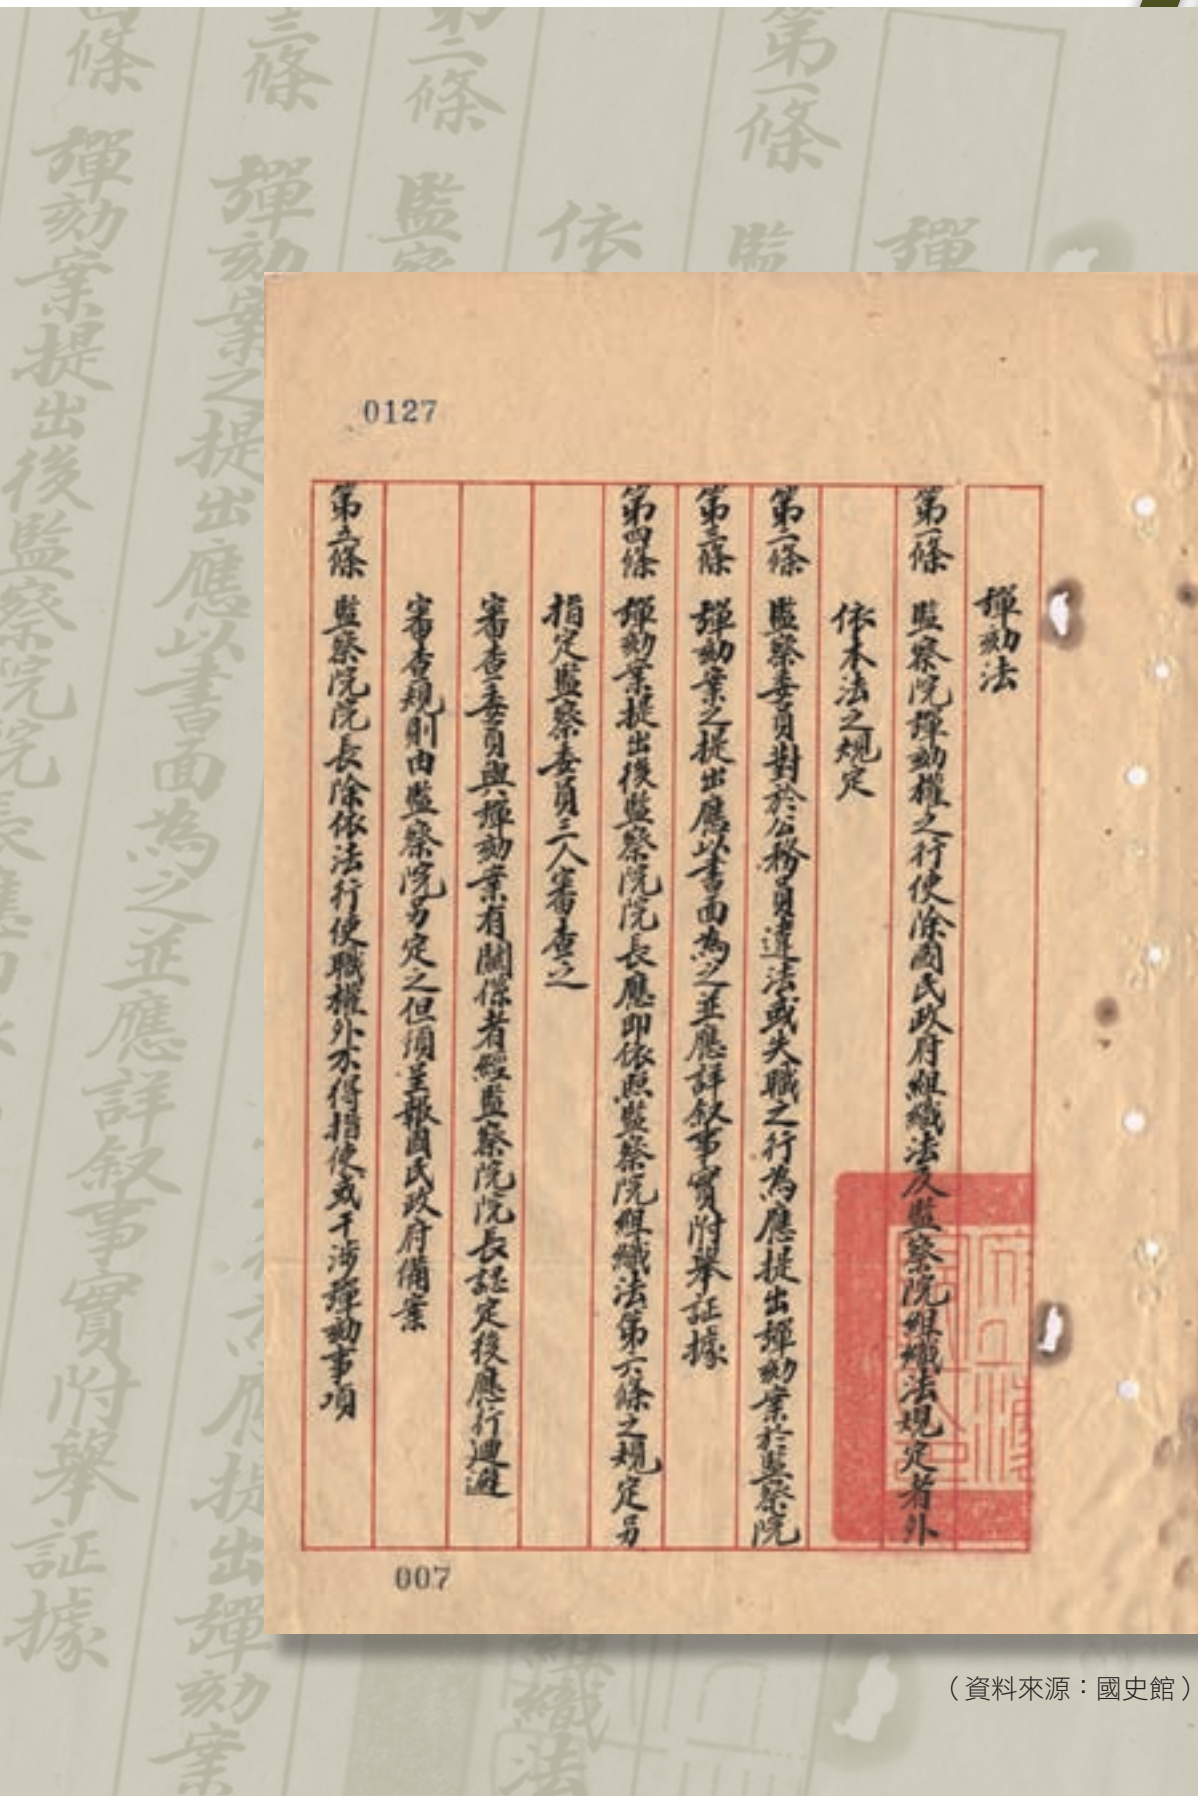 0127
彈劾法
第一條 監察院彈劾權之行使除國民政府組織法及監察院組織法規定者外
依本法之規定
第二條 監察委員對於公務員違法或失職之行為應提出彈劾案於監察院
第三條 彈劾案之提出應以書面為之並應詳敘事實附舉証據
第四條 彈劾案提出後監察院院長應即依照監察院組織法第六條之規定另
指定監察委員三人審查之
審查委員與彈劾案有關係者經監察院院長認定後應行迴避
審查規則由監察院另定之但須呈報國民政府備案
第五條 監察院院長除依法行使職權外不得指使或干涉彈劾事項
007
（資料來源：國史館）